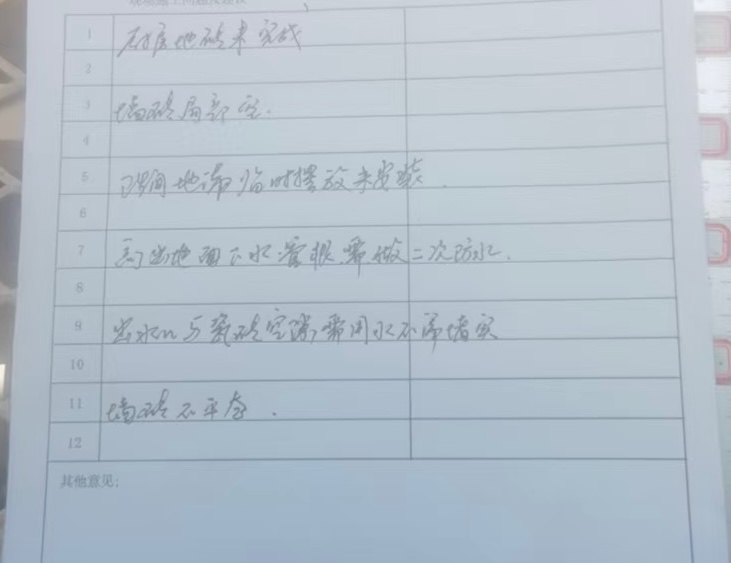 现场施工问题及建议
1 厨房地砖未完成
2
3 墙砖局部空.
4
5 卫生间地漏临时摆放未安装.
6
7 高出地面下水管根需做二次防水.
8
9 出水口与瓷砖空隙,需用水不漏堵实
10
11 墙砖不平整.
12
其他意见: